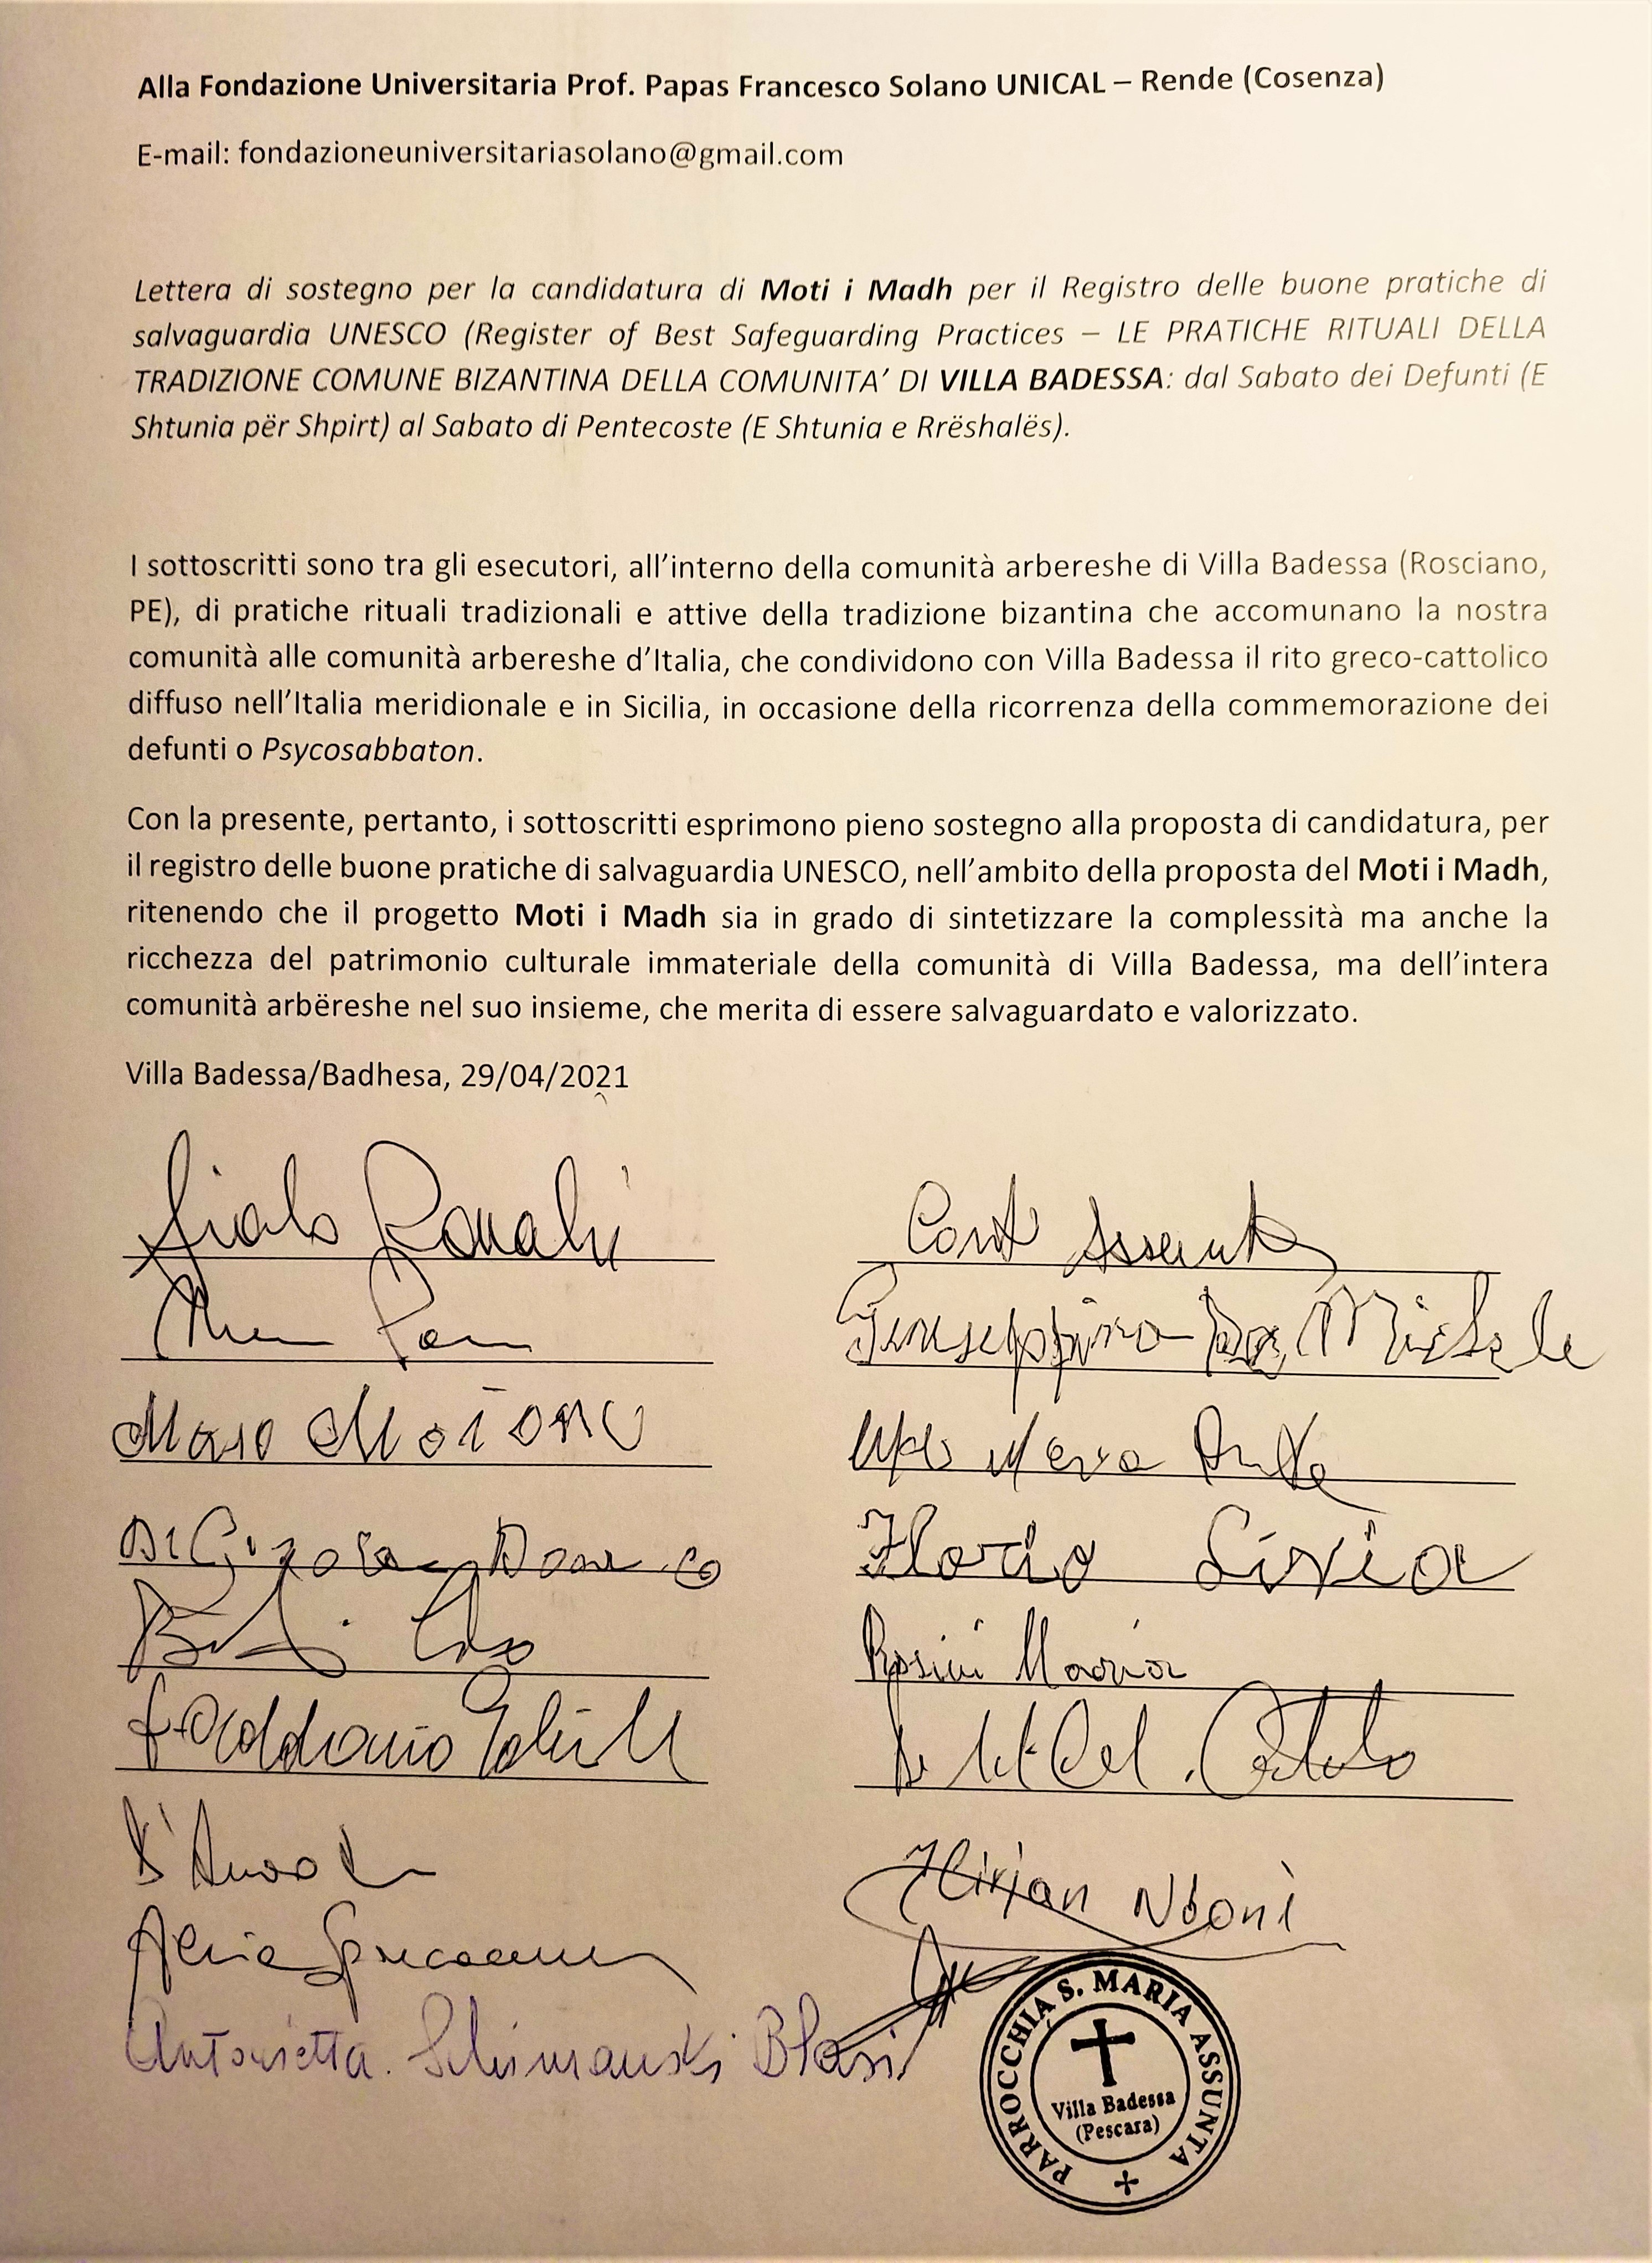 Alla Fondazione Universitaria Prof. Papas Francesco Solano UNICAL – Rende (Cosenza)
E-mail: fondazioneuniversitariasolano@gmail.com
Lettera di sostegno per la candidatura di Moti i Madh per il Registro delle buone pratiche di
salvaguardia UNESCO (Register of Best Safeguarding Practices – LE PRATICHE RITUALI DELLA
TRADIZIONE COMUNE BIZANTINA DELLA COMUNITA’ DI VILLA BADESSA: dal Sabato dei Defunti (E
Shtunia për Shpirt) al Sabato di Pentecoste (E Shtunia e Rrëshalës).
I sottoscritti sono tra gli esecutori, all’interno della comunità arbereshe di Villa Badessa (Rosciano,
PE), di pratiche rituali tradizionali e attive della tradizione bizantina che accomunano la nostra
comunità alle comunità arbereshe d’Italia, che condividono con Villa Badessa il rito greco-cattolico
diffuso nell’Italia meridionale e in Sicilia, in occasione della ricorrenza della commemorazione dei
defunti o Psycosabbaton.
Con la presente, pertanto, i sottoscritti esprimono pieno sostegno alla proposta di candidatura, per
il registro delle buone pratiche di salvaguardia UNESCO, nell’ambito della proposta del Moti i Madh,
ritenendo che il progetto Moti i Madh sia in grado di sintetizzare la complessità ma anche la
ricchezza del patrimonio culturale immateriale della comunità di Villa Badessa, ma dell’intera
comunità arbëreshe nel suo insieme, che merita di essere salvaguardato e valorizzato.
Villa Badessa/Badhesa, 29/04/2021
Giuseppina De Michele
Rosini Maria
Mirjan Ndoni
Antonietta Schimanski Blasi
PARROCCHIA S. MARIA ASSUNTA
Villa Badessa
(Pescara)